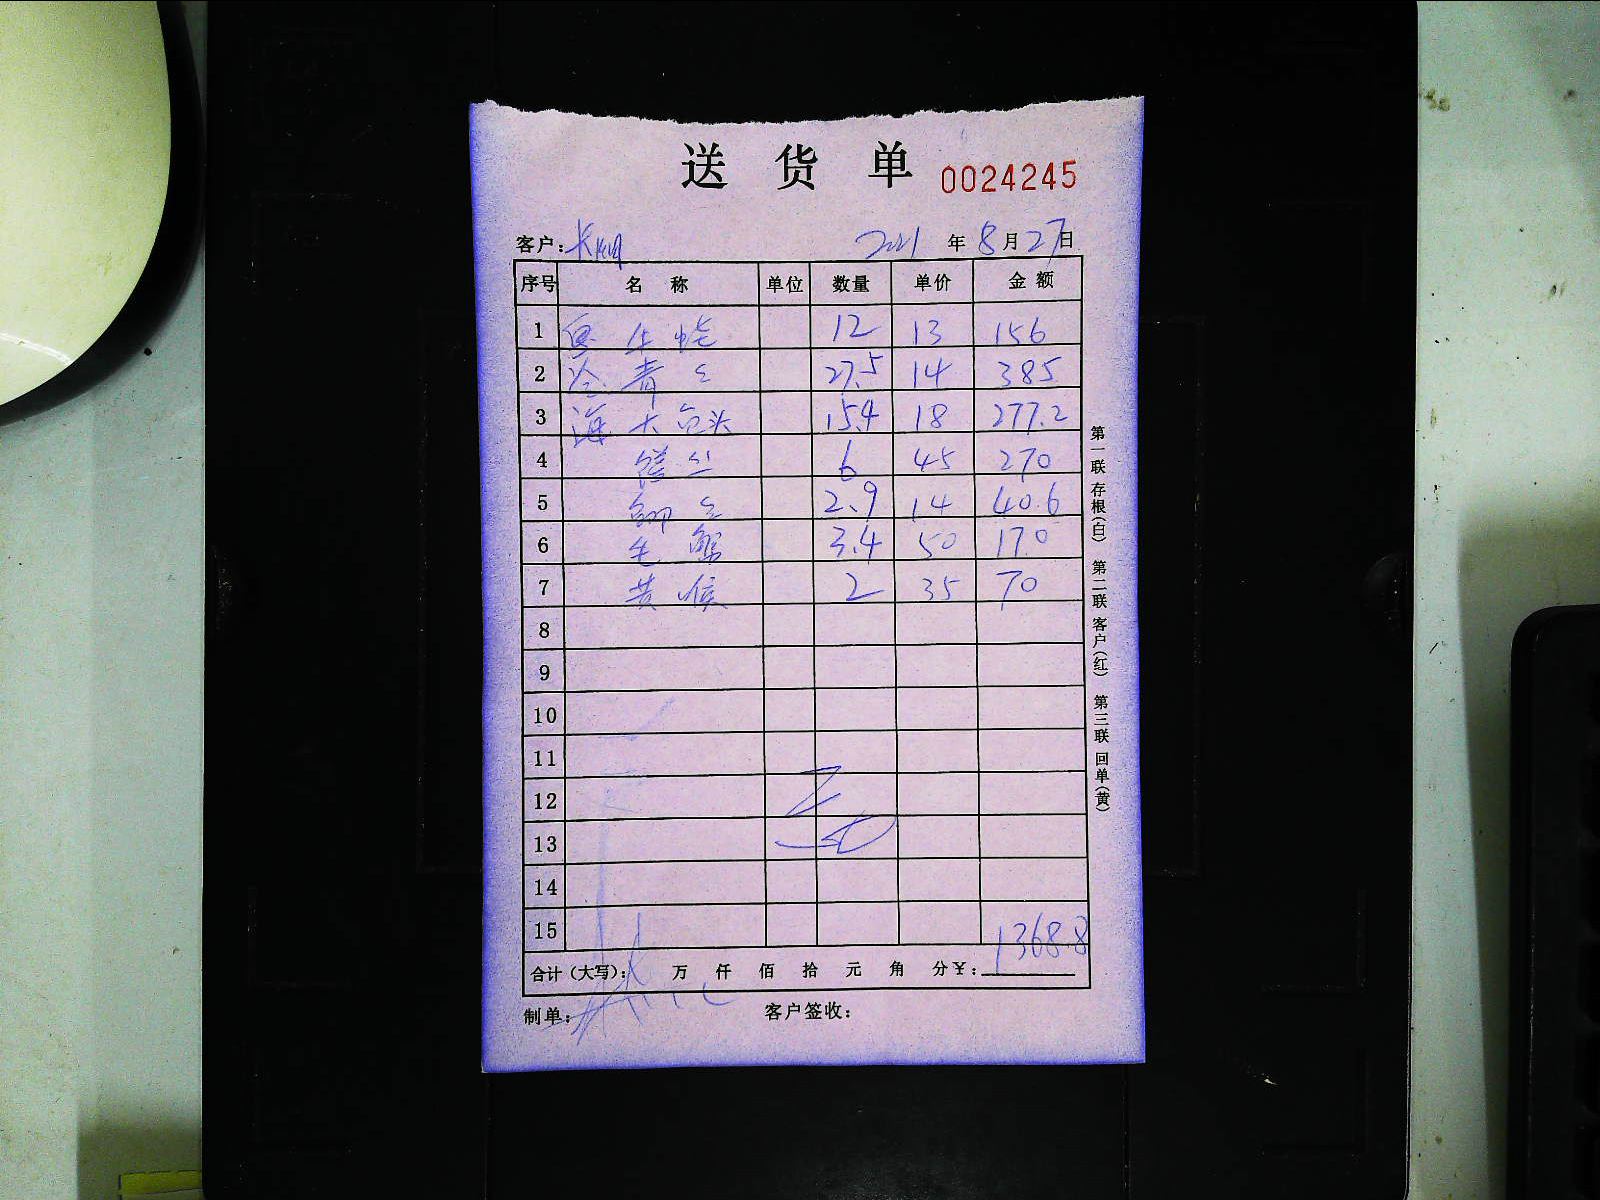 送货单 0024245
客户: 2021年8月27日
序号 名称 单位 数量 单价 金额
1 12 13 156
2 27.5 14 385
3 海大 头 15.4 18 277.2
4 6 45 270
5 2.9 14 40.6
6 3.4 50 170
7 黄喉 2 35 70
8
9
10
11
12
13
14
15 1368.8
合计(大写): 万 仟 佰 拾 元 角 分¥:
制单: 客户签收:
第一联 存根(白) 第二联 客户(红) 第三联 回单(黄)